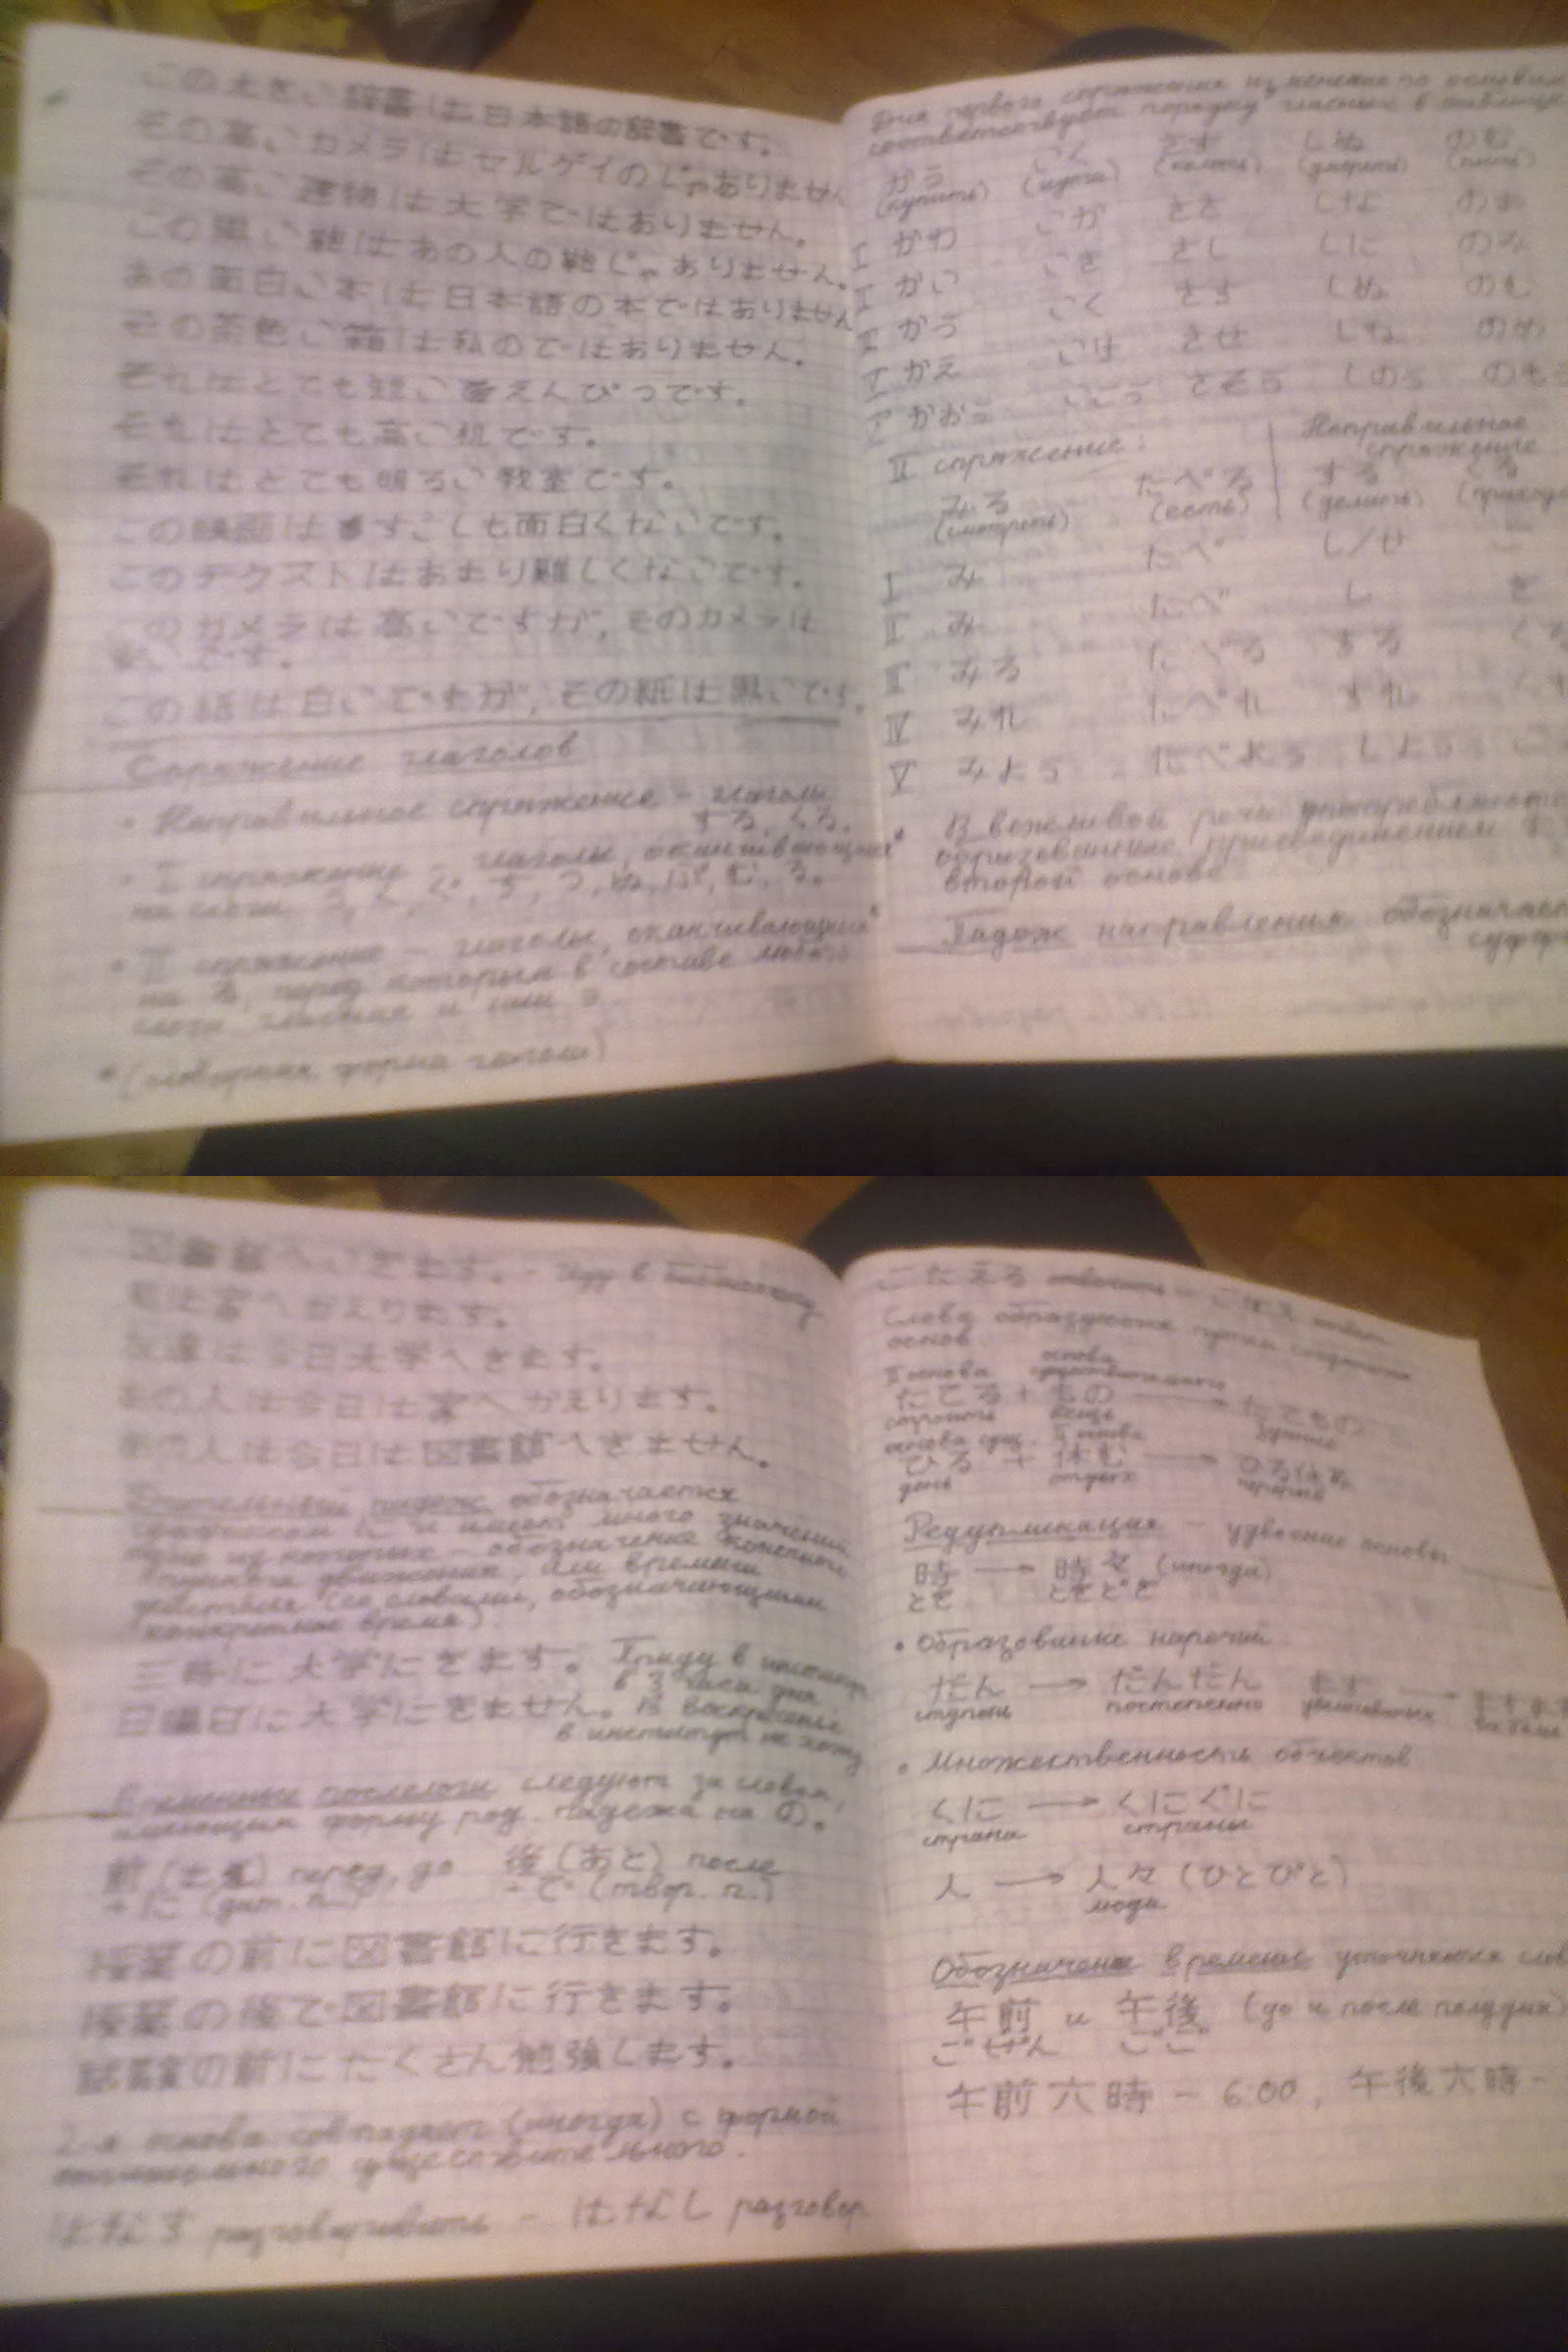 この大きい辞書は日本語の辞書です。
その高いカメラはセルゲイのじゃありません
その高い建物は大学ではありません。
この黒い鞄はあの人の鞄じゃありません。
あの面白い本は日本語の本ではありません
その茶色い箱は私のではありません。
それはとても短いえんぴつです。
それはとても高い机です。
それはとても明るい教室です。
この映画はすこしも面白くないです。
このテクストはあまり難しくないです。
このカメラは高いですが, そのカメラは
いです。
この紙は白いですが, その紙は黒いです。
Спряжение глаголов
• Неправильное спряжение – глаголы
する, くる.
• I спряжение – глаголы, оканчивающиеся*
на слоги う, く, ぐ, す, つ, ぬ, ぶ, む, る.
• II спряжение – глаголы, оканчивающиеся*
на る, перед которым в составе любого
слога гласные и или э.
*(словарная форма глагола)
Для первого спряжения изменение по основам
соответствует порядку гласных в таблице
かう いく さす しぬ のむ
(купить) (идти) (умереть) (пить)
I かわ いか ささ しな のま
II かい いき さし しに のみ
かう いく さす しぬ のむ
かえ いけ させ しね のめ
かおう いこう さそう しのう のもう
II спряжение: Неправильное
спряжение
みる たべる する くる
(смотреть) (есть) (делать)
I み たべ し/せ こ
II み たべ し き
みる たべる する くる
IV みれ たべれ すれ くれ
V みよう たべよう しよう こ
В вежливой речи употребляются
образованные присоединением
второй основе
Падеж направления обозначает
суфф
図書館へいきます。 - Иду в библиотеку
へかえります。
友達は今日大学へきます。
あの人は今日は家へかえります。
あの人は今日は図書館へきません。
Дательный падеж обозначается
суффиксом に и имеет много значений,
одно из которых – обозначение конечного
пункта движения, или времени
действия (со словами, обозначающими
конкретное время).
三時に大学にきます。 Приду в институт
в 3 часа дня
日曜日に大学にきません。 В воскресенье
в институт не хожу
Временные послелоги следуют за словом,
имеющим форму род. падежа на の。
前 (まえ) перед, до 後 (あと) после
+に (дат. п.) -で (твор. п.)
授業の前に図書館に行きます。
授業の後で図書館に行きます。
試験の前にたくさん勉強します。
2-я основа совпадает (иногда) с формой
отглагольного существительного.
はなす разговаривать – はなし разговор
こたえる ответить – こたえ ответ
Слова образуются путем соединения
основ.
II основа основа
существительного
たてる + もの → たてもの
строить вещь здание
основа сущ. II основа
ひる + 休む → ひる休み
день отдых перерыв
Редупликация – удвоение основы
時 → 時々 (иногда)
とき ときどき
• Образование наречий
だん → だんだん ます → ますます
ступень постепенно
• Множественность объектов
くに → くにぐに
страна страны
人 → 人々 (ひとびと)
люди
Обозначения времени уточняются
午前 и 午後 (до и после полудня)
ごぜん ごご
午前六時 – 6:00, 午後六時 –